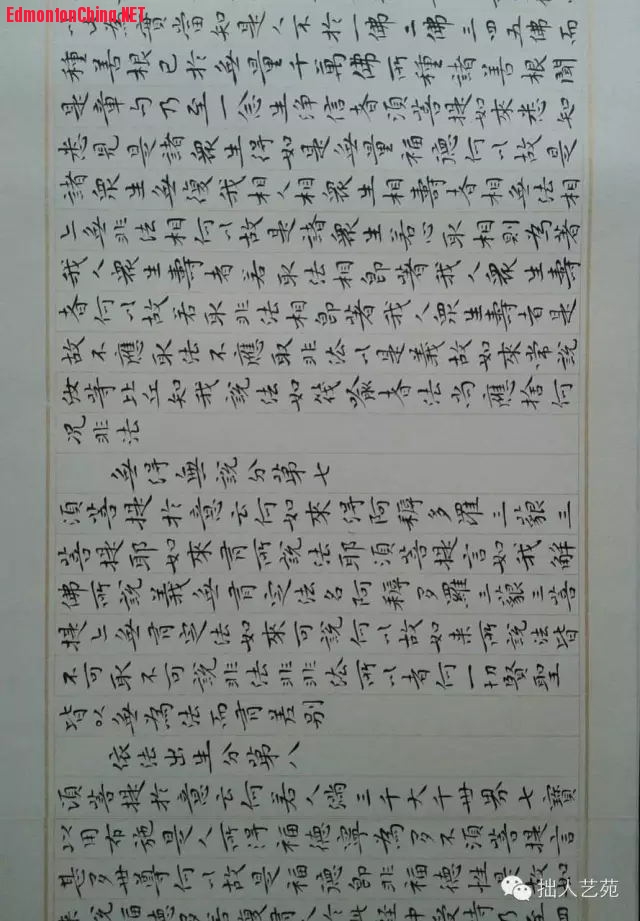 EdmontonChina.NET
為實當知是人不於一佛二佛三四五佛而
種善根已於無量千萬佛所種諸善根聞
是章句乃至一念生淨信者須菩提如來悉知
悉見是諸眾生得如是無量福德何以故是
諸眾生無復我相人相眾生相壽者相無法相
亦無非法相何以故是諸眾生若心取相則為著
我人眾生壽者若取法相即著我人眾生壽
者何以故若取非法相即著我人眾生壽者是
故不應取法不應取非法以是義故如來常說
汝等比丘知我說法如筏喻者法尚應捨何
況非法
無得無說分第七
須菩提於意云何如來得阿耨多羅三藐三
菩提耶如來有所說法耶須菩提言如我解
佛所說義無有定法名阿耨多羅三藐三菩
提亦無有定法如來可說何以故如来所說法皆
不可取不可說非法非非法所以者何一切賢聖
皆以無為法而有差別
依法出生分第八
須菩提於意云何若人滿三千大千世界七寶
以用布施是人所得福德寧為多不須菩提言
甚多世尊何以故是福德即非福德性是故如
來說福德多若復有人於此經中受持
拙人艺苑